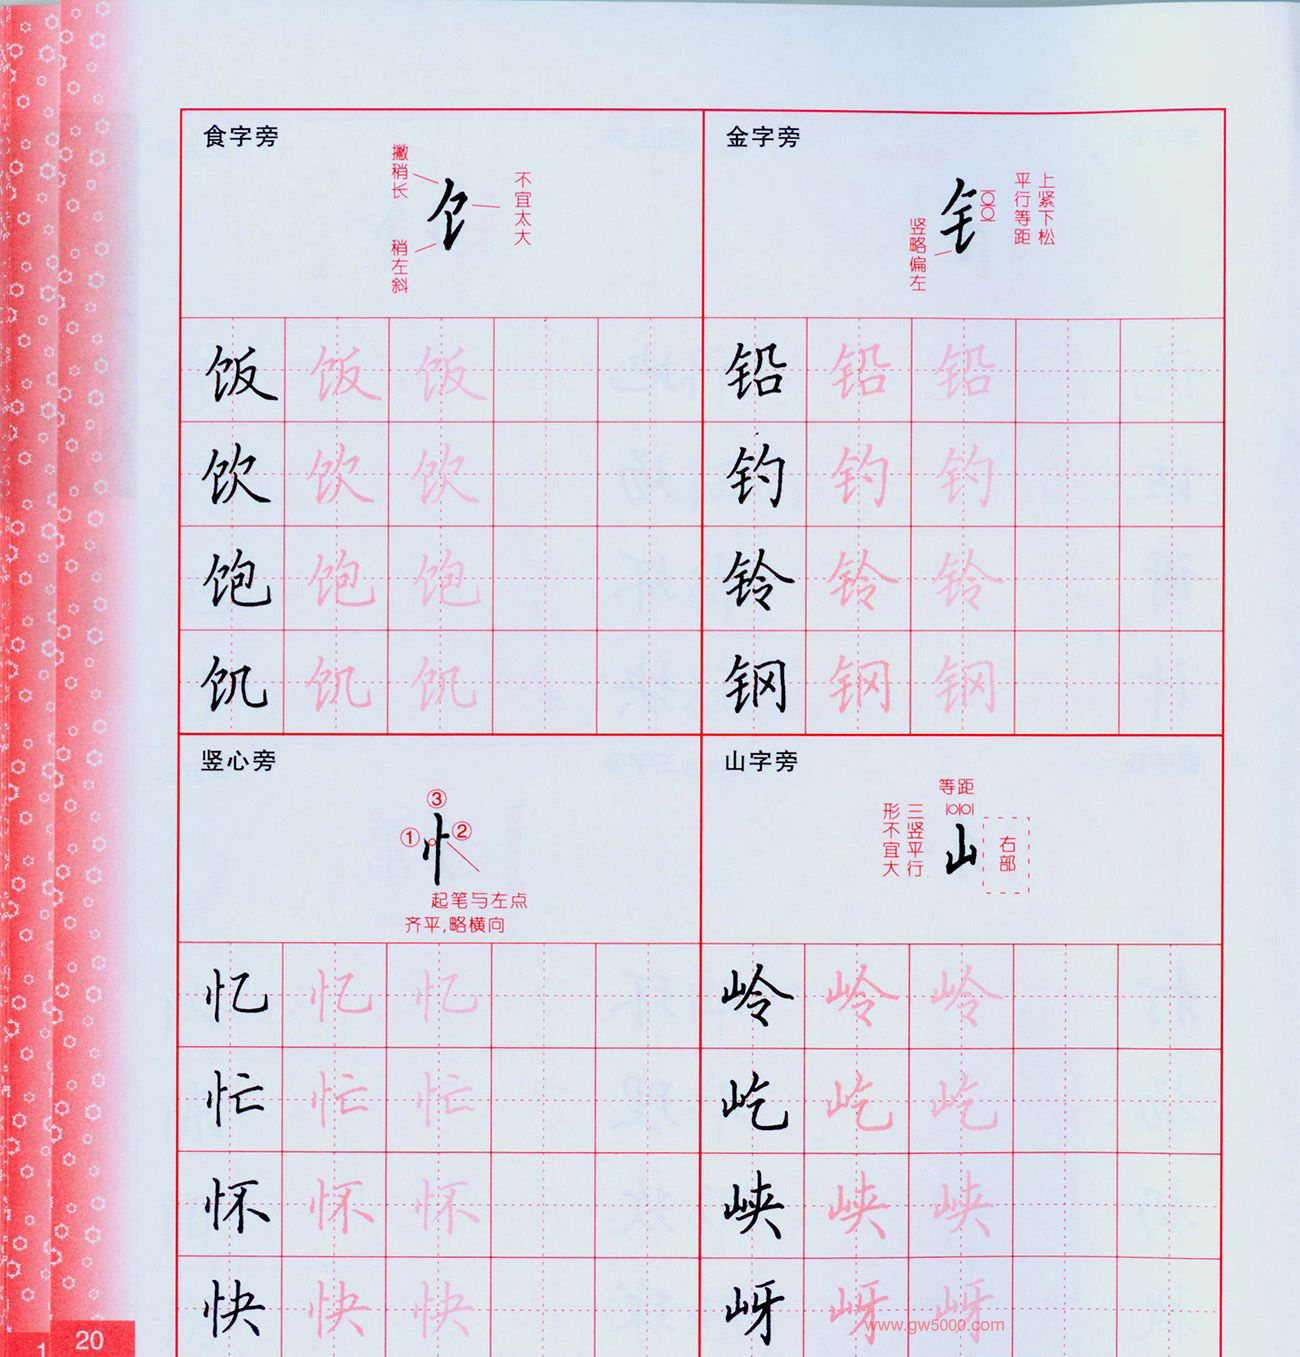 食字旁
撇稍长
饣
不宜太大
稍左斜
饭 饭 饭
饮 饮 饮
饱 饱 饱
饥 饥 饥
金字旁
钅
上紧下松
平行等距
竖略偏左
铅 铅 铅
钓 钓 钓
铃 铃 铃
钢 钢 钢
竖心旁
③
① 忄 ②
起笔与左点
齐平,略横向
忆 忆 忆
忙 忙 忙
怀 怀 怀
快 快 快
山字旁
等距
三竖平行
形不宜大
山
右部
岭 岭 岭
屹 屹 屹
峡 峡 峡
岈 岈 岈
www.gw5000.com
1
20